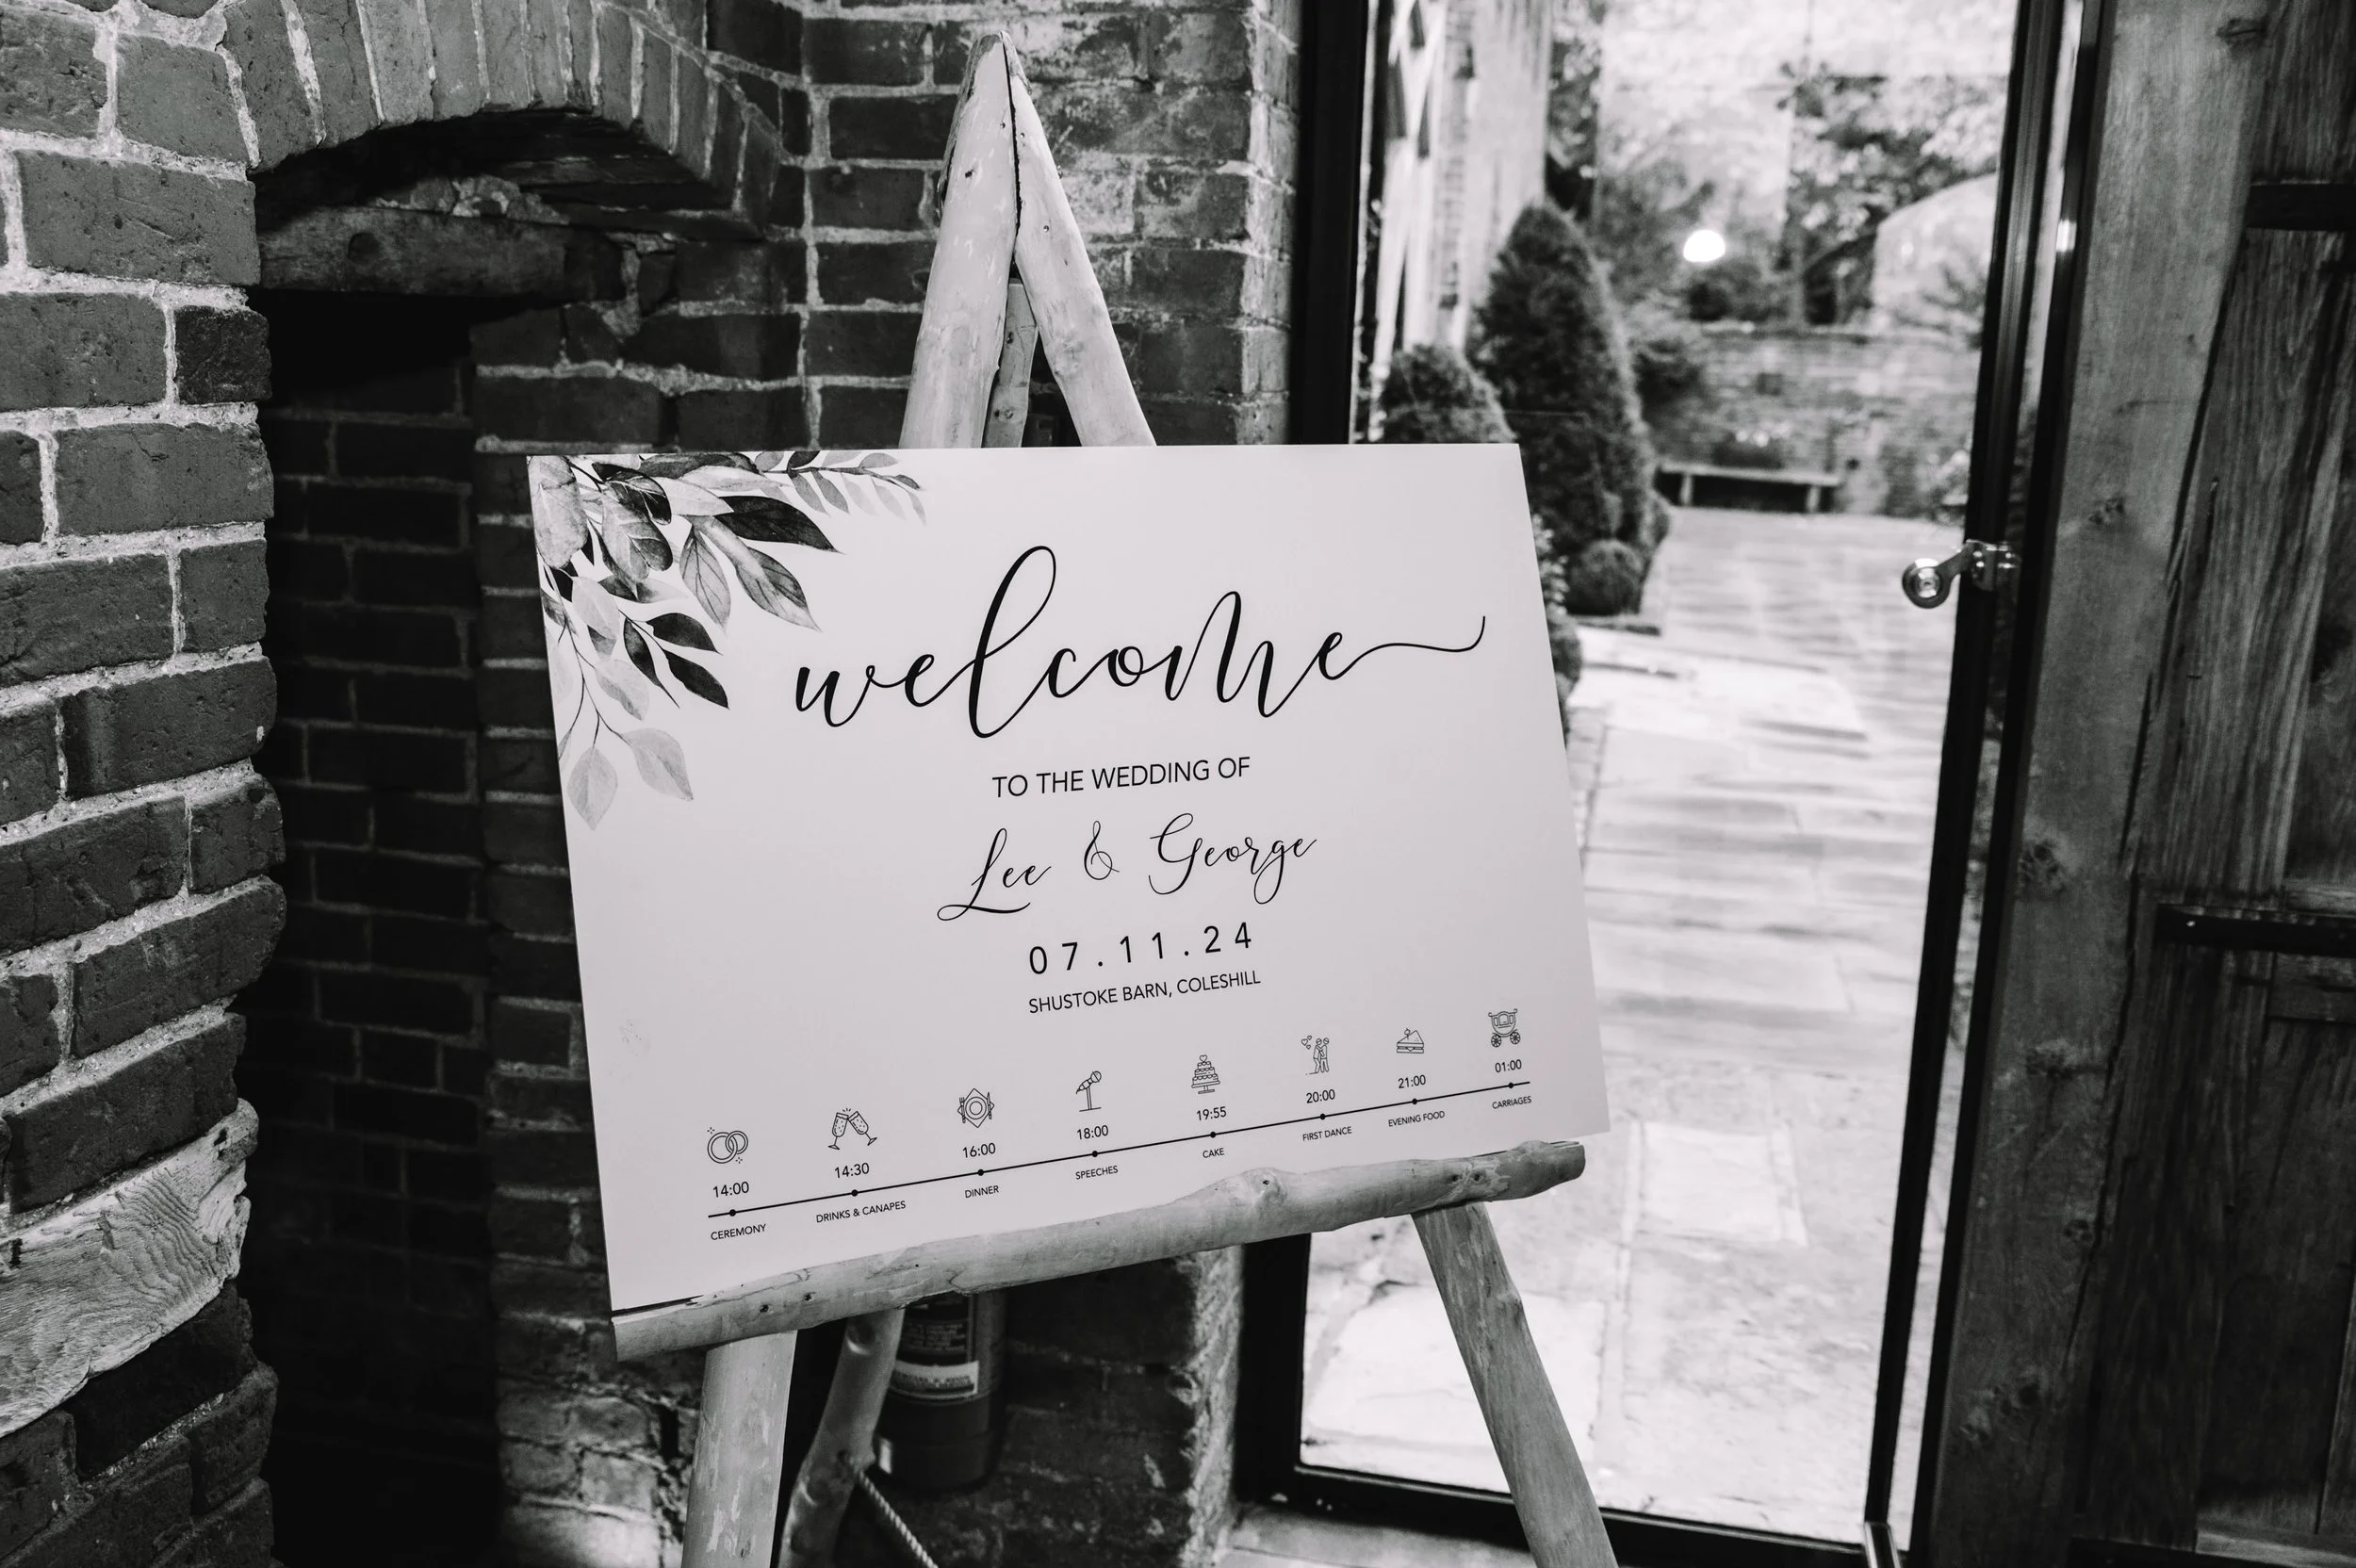 welcome
TO THE WEDDING OF
Lee & George
07.11.24
SHUSTOKE BARN, COLESHILL
14:00 14:30 16:00 18:00 19:55 20:00 21:00 01:00
CEREMONY DRINKS & CANAPES DINNER SPEECHES CAKE FIRST DANCE EVENING FOOD CARRIAGES